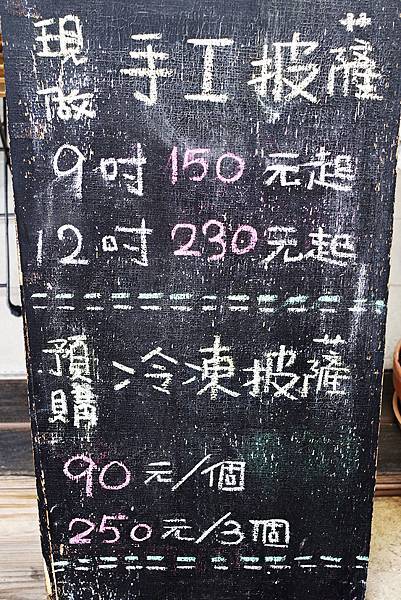 現做 手工披薩
9吋 150元起
12吋 230元起
預購 冷凍披薩
90元/個
250元/3個